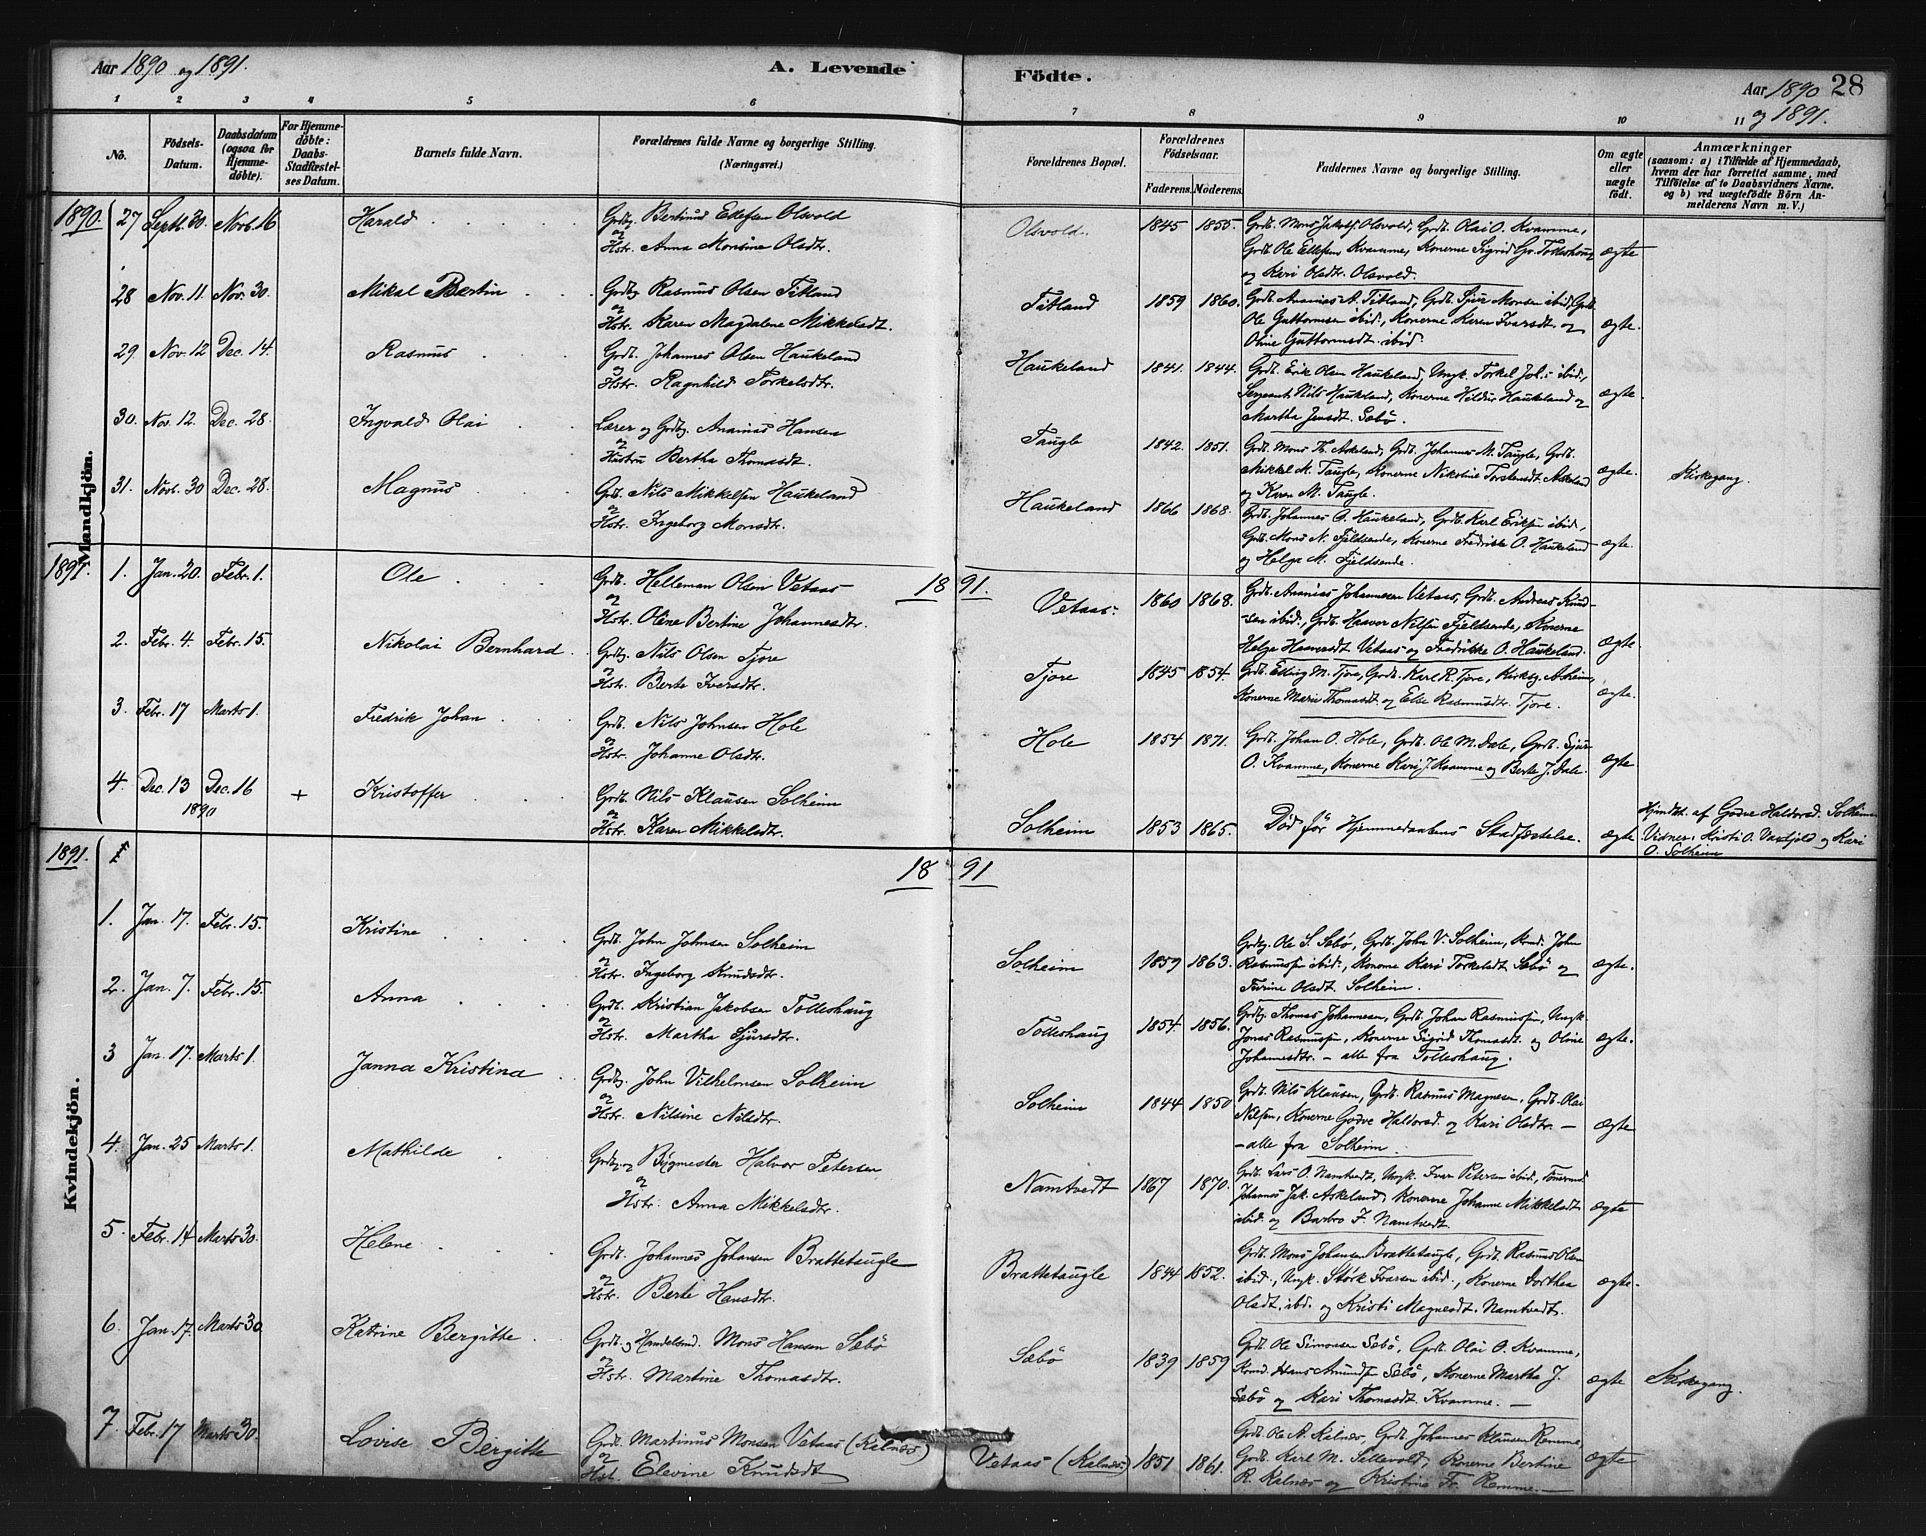 Aar 1890 og 1891.
A. Levende
Födte.
Aar 1890
28
og 1891.
1 2 3 4 5 6 7 8 9 10 11
No.
Födsels-
Datum.
Daabsdatum
(ogsaa for
Hjemme-
döbte).
For Hjemme-
döbte:
Daabs-
Stadfæstel-
ses Datum.
Barnets fulde Navn.
Forældrenes fulde Navne og borgerlige Stilling.
(Næringsvei.)
Forældrenes Bopæl.
Forældrenes
Födselsaar.
Faderens. Moderens.
Faddernes Navne og borgerlige Stilling.
Om ægte
eller
uægte
födt.
Anmærkninger
(saasom: a) i Tilfælde af Hjemmedaab,
hvem der har forrettet samme, med
Tilföielse af to Daabsvidners Navne.
og b) ved uægtefödte Börn An-
melderens Navn m. V.)
Mandkjön.
1890. 27 Septb. 30. Novb. 16 Harald
Grdbg. Bertinus Ellefsen Olsvold
og
Hstr. Anna Monsine Olsdtr.
Olsvold. 1845 1855.
Grdb. Mons Jakobs. Olsvold, Grdb. Olai O. Kvamme,
Grdb. Ole Ellefsen Kvamme, Konerne Sigrid Gr. Tolleshaug
og Kari Olsdtr. Olsvold.
ægte
28 Nov. 11. Nov. 30. Mikal Bertin
Grdbg. Rasmus Olsen Titland
og
Hstr. Karen Magdalene Mikkelsdt.
Titland 1859 1860.
Grdb. Ananias A. Titland, Grdb. Sjur Monsen ibid, Grdb.
Ole Guttormsen ibid., Konerne Karen Ivarsdt. og
Oline Guttormsdt. ibid.
ægte.
29. Nov. 12 Dec. 14. Rasmus
Grdb. Johannes Olsen Haukeland
og
Hstr. Ragnhild Torkelsdtr.
Haukeland 1841. 1844.
Grdb. Erik Olsen Haukeland, Ungk. Torkel Joh.s ibid,
Sergeant Nils Haukeland, Konerne Hildur Haukeland og
Martha Jensdt. Sæbö.
ægte.
30. Nov. 12. Dec. 28. Ingvald Olai
Lærer og Grdbg. Ananias Hansen
og
Hustru Bertha Thomasdt.
Taugle 1842. 1851.
Grdb. Mons Th. Askeland, Grdb. Johannes M. Taugle, Grdb.
Mikkel M. Taugle, Konerne Nikoline Torstensdt. Askeland
og Karen M. Taugle.
ægte. Kirkegang.
31. Novb. 30 Dec. 28. Magnus
Grdb. Nils Mikkelsen Haukeland
og
Hstr. Ingeborg Monsdtr.
Haukeland 1866 1868.
Grdb. Johannes O. Haukeland, Grdb. Karl Eriksen ibid.,
Grdb. Mons N. Fjeldsende, Konerne Fredrikke O. Haukeland
og Helga M. Fjeldsende.
ægte.
1891.
18 91.
1. Jan. 20. Febr. 1. Ole
Grdb. Helleman Olsen Vetaas
og
Hstr. Oline Bertine Johannesdtr.
Vetaas. 1860 1868.
Grdb. Ananias Johannesen Vetaas, Grdb. Andreas Knud-
sen ibid., Grdb. Haavor Nilsen Fjeldsende, Konerne
Helga Haavorsdt. Vetaas og Fredrikke O. Haukeland.
ægte.
2. Febr. 4. Febr. 15. Nikolai Bernhard
Grdbg. Nils Olsen Tjore
og
Hstr. Berte Iversdtr.
Tjore 1845 1854.
Grdb. Elling M. Tjore, Grdb. Karl R. Tjore, Kirksg. Asheim,
Konerne Mari Thomasdt. og Else Rasmusdtr. Tjore.
ægte.
3. Febr. 17 Marts 1. Fredrik Johan
Grdb. Nils Johnsen Hole
og
Hstr. Johanne Olsdtr.
Hole 1854 1871.
Grdb. Johan O. Hole, Grdb. Ole M. Dale, Grdb. Sjur
O. Kvamme, Konerne Kari J. Kvamme og Berte J. Dale.
ægte
4. Dec. 13 Dec. 16
1890
+ Kristoffer
Grdb. Nils Klausen Solheim
og
Hstr. Karen Mikkelsdtr.
Solheim 1853 1865.
Död för Hjemmedaabens Stadfæstelse.
ægte
Hjmdbt. af Godve Haldorsd. Solheim
Vidner: Kristi O. Vasfjold og Kari
O. Solheim
Kvindekjön.
1891.
18 91
1. Jan. 17. Febr. 15. Kristine
Grdb. John Johnsen Solheim
og
Hstr. Ingeborg Knudsdtr.
Solheim 1859 1863.
Grdbg. Ole S. Sæbö, Grdb. John V. Solheim, Kmd. John
Rasmussen ibid., Konerne Kari Torkelsdt. Sæbö og
Turine Olsdt. Solheim.
ægte.
2. Jan. 7. Febr. 15. Anna
Grdb. Kristian Jakobsen Tolleshaug
og
Hstr. Martha Sjursdtr.
Tolleshaug 1854. 1856.
Grdbg. Thomas Johannesen, Grdb. Johan Rasmussen, Ungk.
Jonas Rasmussen, Konerne Sigrid Thomasdt. og Oline
Johannesdtr. – alle fra Tolleshaug.
ægte.
3 Jan. 17. Marts 1. Janna Kristina
Grdbg. John Vilhelmsen Solheim
og
Hstr. Nilsine Nilsdtr.
Solheim 1844 1850
Grdb. Nils Klausen, Grdb. Rasmus Magnesen, Grdb. Olai
Nilsen, Konerne Godve Haldorsd. og Kari Olsdtr. –
– alle fra Solheim.
ægte
4. Jan. 25 Marts 1. Mathilde
Grdbg. og Bygmester Halvor Petersen
og
Hstr. Anna Mikkelsdtr.
Namtvedt 1867 1870.
Grdb. Lars O. Namtvedt, Ungk. Ivar Petersen ibid.,
Johannes Jak. Askeland, Konerne Johanne Mikkelsdt.
ibid. og Barbro F. Namtvedt.
ægte
5. Febr. 14 Marts 30. Helene
Grdb. Johannes Johansen Brattetaugle
og
Hstr. Berte Hansdtr.
Brattetaugle 1844 1852.
Grdb. Mons Johansen Brattetaugle, Grdb. Rasmus Olsen
ibid., Ungk. Störk Ivarsen ibid., Konerne Dorthea
Olsdt. ibd. og Kristi Magnesdt. Namtvedt.
ægte.
6. Jan. 17. Marts 30. Katrine Bergitte
Grdb. og Handelsmd. Mons Hansen Sæbö
og
Hstr. Martine Thomasdtr.
Sæbö 1839 1859
Grdb. Ole Simonsen Sæbö, Grdb. Olai O. Kvamme,
Kmd. Hans Amundsen Sæbö, Konerne Martha J.
Sæbö og Kari Thomasdt. Kvamme. –
ægte Kirkegang.
7. Febr. 17 Marts 30. Lovise Bergitte
Grdb. Martinus Monsen Vetaas (Kalnæs)
og
Hst. Elevine Knudsdt
Vetaas (Kalnæs) 1851 1861.
Grdb. Ole A. Kalnæs, Grdb. Johannes Klausen Remme,
Grdb. Karl M. Sellevold, Konerne Bertine
R. Kalnæs og Kristine Fr. Remme. –
ægte